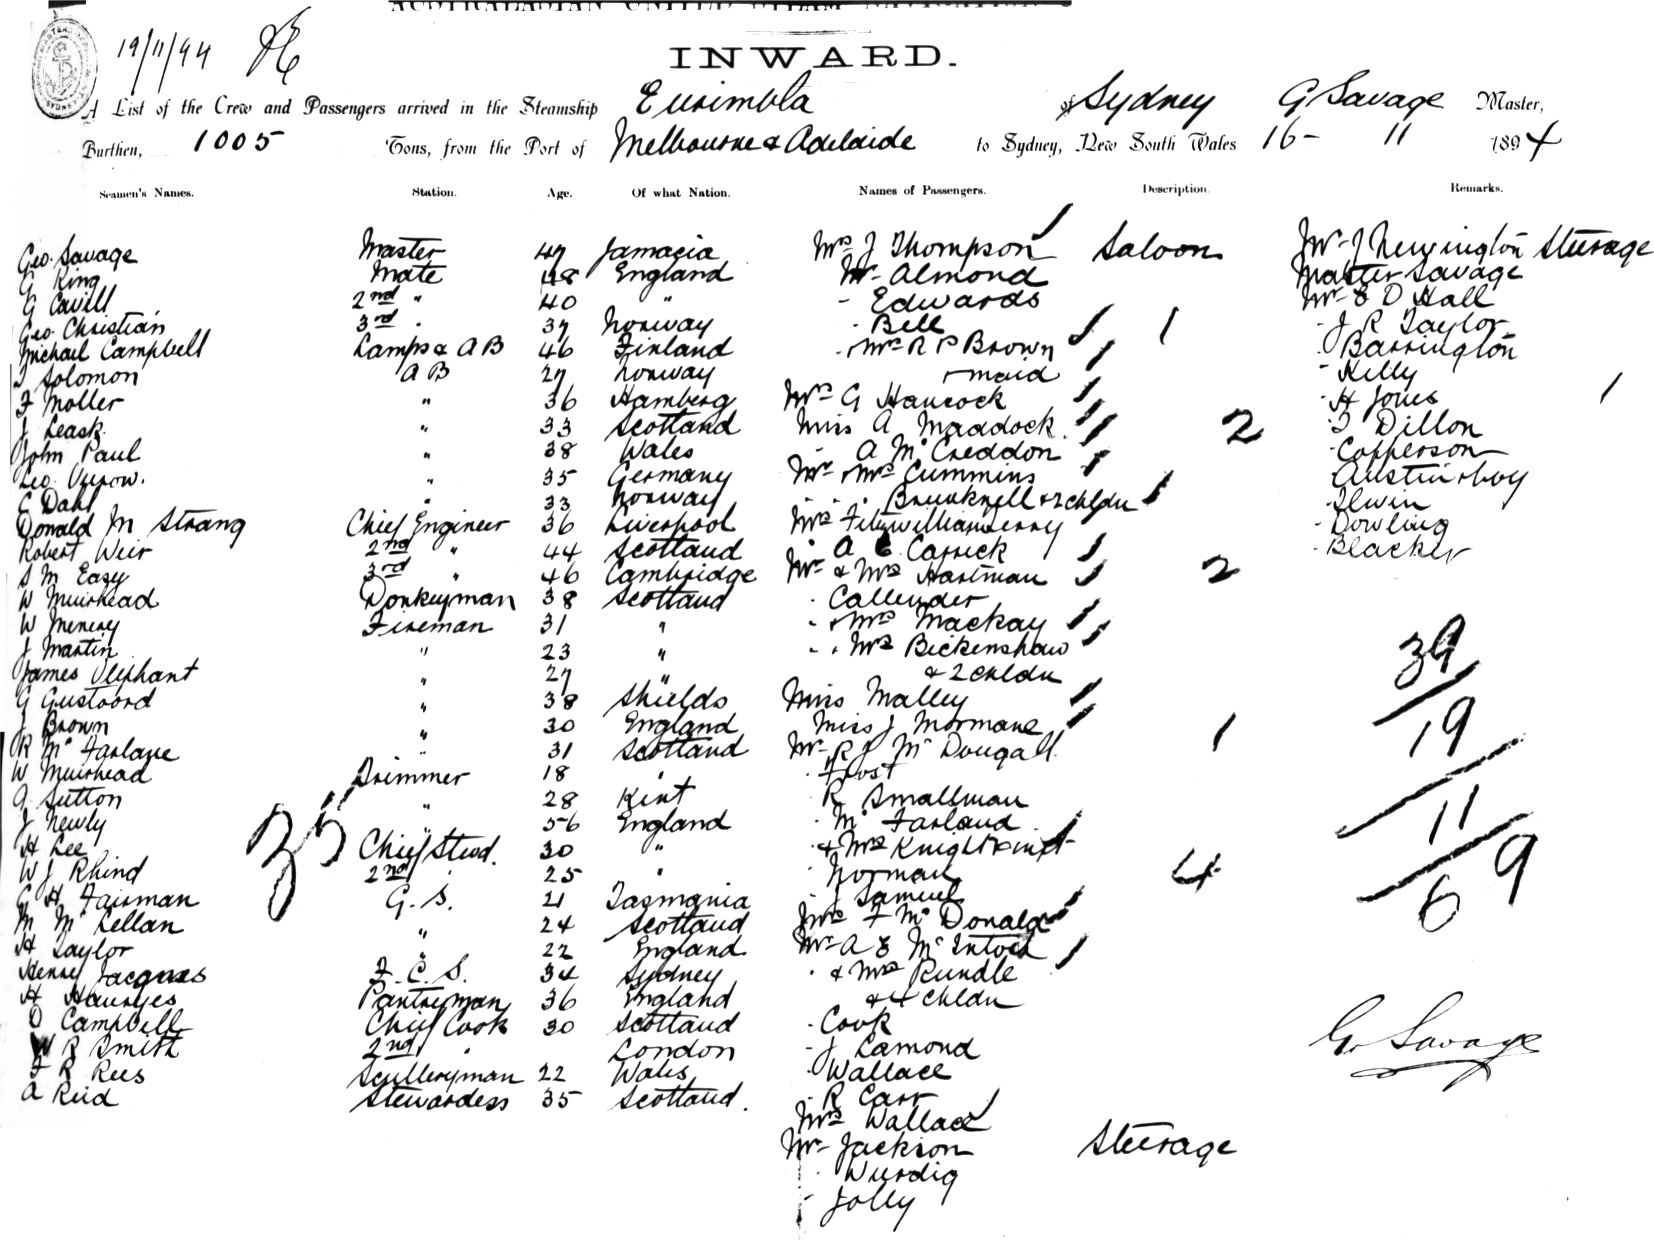 19/11/94
INWARD.
A List of the Crew and Passengers arrived in the Steamship Eurimbla of Sydney G Savage Master,
Burthen, 1005 Tons, from the Port of Melbourne & Adelaide to Sydney, New South Wales 16- 11 1894
Seamen's Names. Station. Age. Of what Nation. Names of Passengers. Description. Remarks.
Geo. Savage Master 47 Jamacia Mrs J Thompson Saloon Mr J Newington Steerage
G King Mate 48 England Mr Almond Master Savage
G Cavill 2nd " 40 " - Edwards Mr E D Hall
Geo. Christian 3rd . 37 Norway - Bell 1 - J R Taylor
Michael Campbell Lamps & AB 46 Finland - Mrs R P Brown - Barrington
J Solomon A B 27 Norway maid - Kelly
F Moller " 36 Hamberg Mrs G Hancock - H Jones 1
J Leask " 33 Scotland Miss A Maddock 2 Dillon
John Paul " 38 Wales - A Mc Creddon - Copperson
Geo. " 35 Germany Mr & Mrs Cummins Austin & boy
E Dahl " 33 Norway - - & 2 chldn - Ilwin
Donald M Strang Chief Engineer 36 Liverpool - Dowling
Robert Weir 2nd " 44 Scotland - A Carrick - Blacker
S M Eazy 3rd " 46 Cambridge Mr & Mrs Hartman 2
W Muirhead Donkeyman 38 Scotland - Callender
W Menery Fireman 31 " - & Mrs Mackay 39
J Martin " 23 " - & Mrs Bickenshaw
James Oliphant " 27 " & 2 chldn
G Gustoord " 38 Shields Miss Malley
J Brown " 30 England Miss J Mormane 1 19
R Mc Farlane " 31 Scotland Mr R J Mc Dougall
W Muirhead Trimmer 18 " - Frost
A Sutton " 28 Kent - R Smallman 11
J Newly " 56 England - Mc Farland
H Lee 35 Chief Stewd. 30 " - & Mrs Knight & inft
W J Rhind 2nd 25 " - Norman 4 69
G H Fairman G. S. 21 Tasmania - J Samuel
M Mc Lellan " 24 Scotland Mrs F Mc Donald
H Taylor " 22 England Mr A E Mc Intosh
Henry Jacques F. C. S. 34 Sydney - & Mrs Rundle
H Pantryman 36 England & 4 chldn
D Campbell Chief Cook 30 Scotland - Cook
W R Smith 2nd " London - J Lamond G. Savage
F R Rees Sculleryman 22 Wales - Wallace
A Reid Stewardess 35 Scotland. - R Carr
Mrs Wallace
Mr Jackson Steerage
- Wurdig
- Jolly